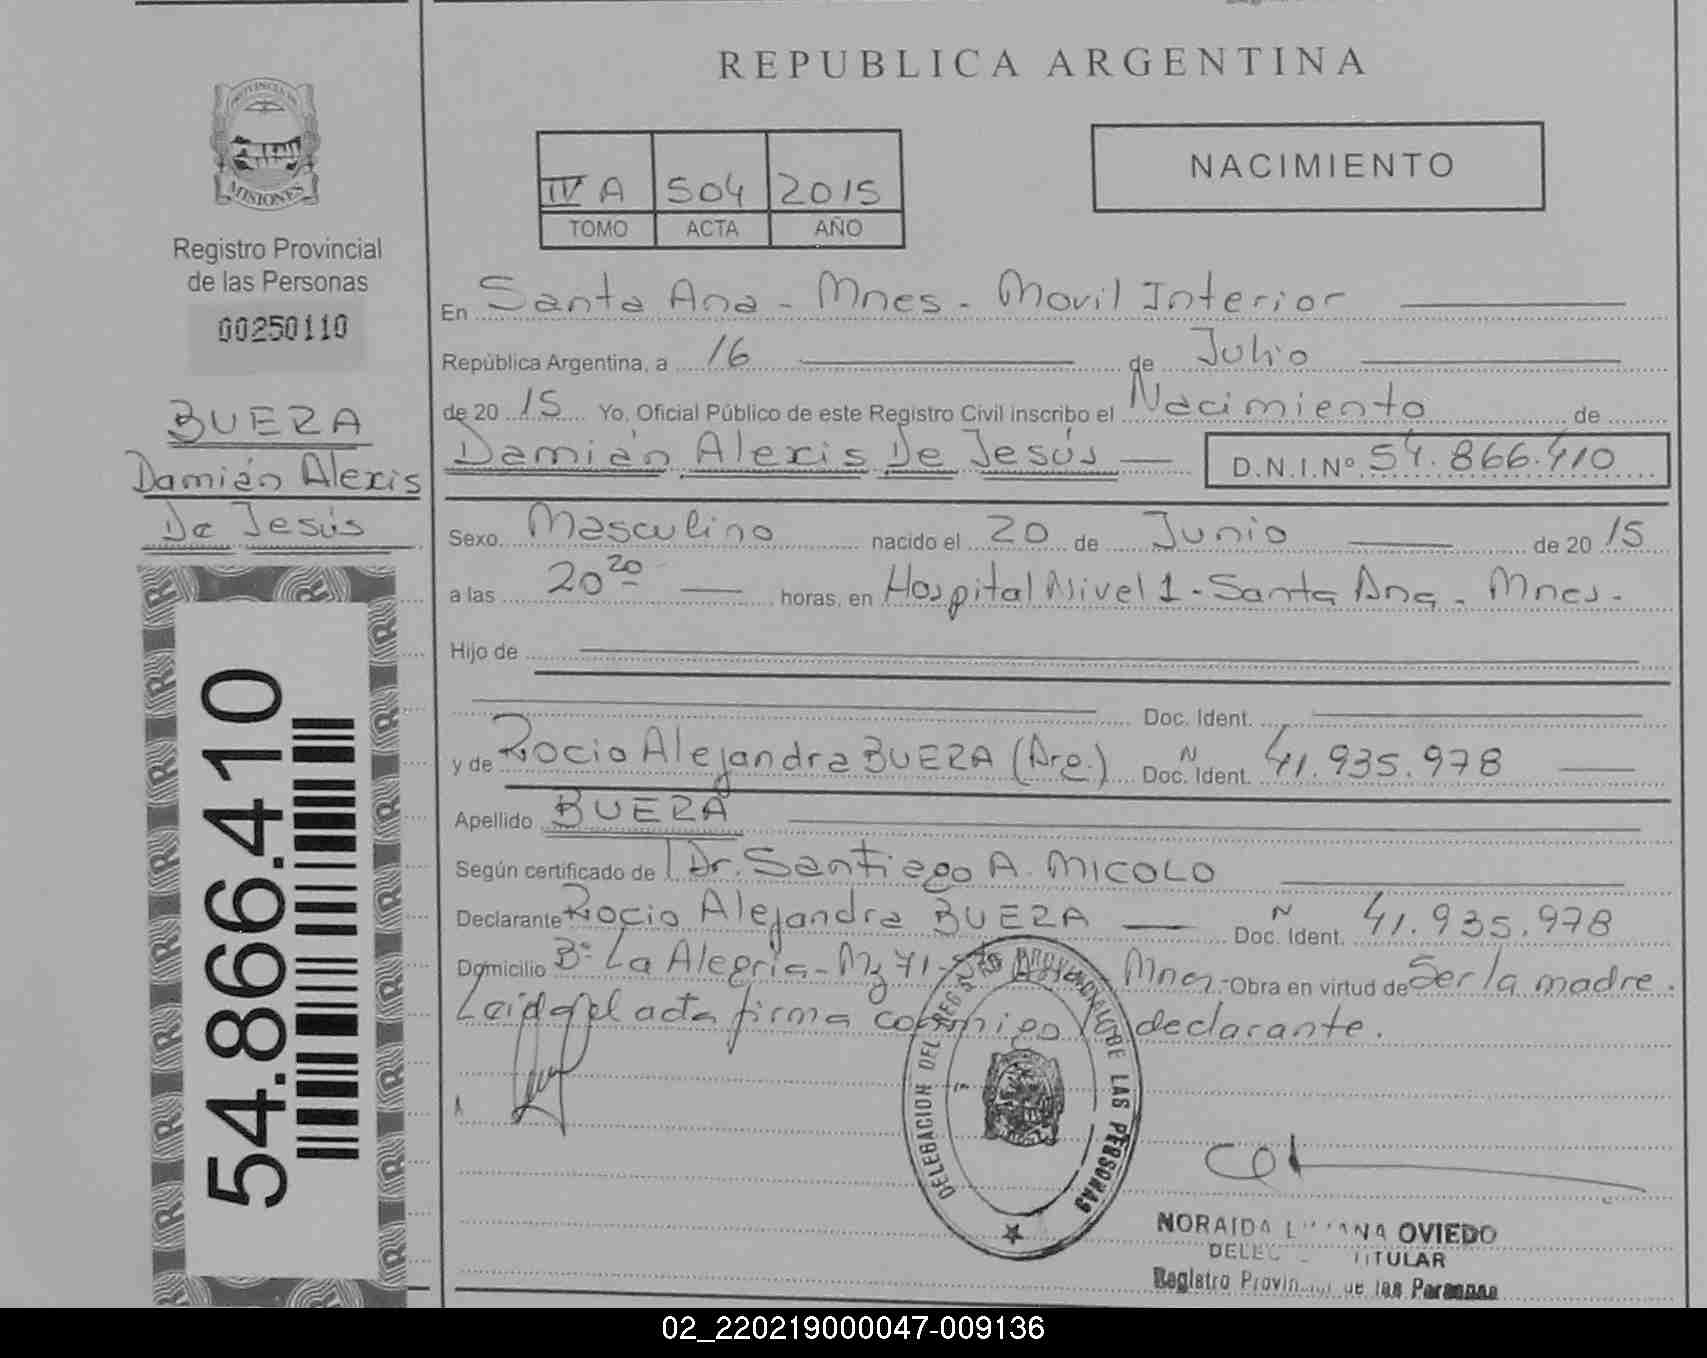 REPUBLICA ARGENTINA
PROVINCIA DE
MISIONES
Registro Provincial
de las Personas
00250110
BUEZA
Damián Alexis
De Jesús
54.866.410
IV A 504 2015
TOMO ACTA AÑO
NACIMIENTO
En Santa Ana - Mnes - Movil Interior
República Argentina, a 16 de Julio
de 20 15 Yo, Oficial Público de este Registro Civil inscribo el Nacimiento de
Damián Alexis De Jesús D.N.I.Nº 54.866.410
Sexo Masculino nacido el 20 de Junio de 20 15
a las 20 20 horas, en Hospital Nivel 1 - Santa Ana - Mnes -
Hijo de
Doc. Ident.
y de Rocio Alejandra BUEZA (Arg.) Doc. Ident. N 41.935.978
Apellido BUEZA
Según certificado de Dr. Santiago A. MICOLO
Declarante Rocio Alejandra BUEZA Doc. Ident. N 41.935.978
Domicilio Bº La Alegria - Mz 71 - Mnes - Obra en virtud de Ser la madre.
Leida el acta firma conmigo la declarante.
DELEGACION DEL REGISTRO PROVINCIAL DE LAS PERSONAS
NORAIDA OVIEDO
TITULAR
Registro Provincial de las Personas
02_220219000047-009136